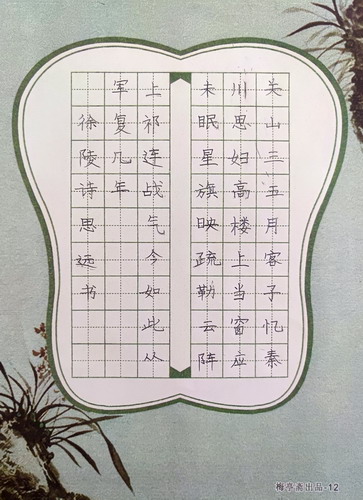 关山三五月客子忆秦
川思妇高楼上当窗应
未眠星旗映疏勒云阵
上祁连战气今如此从
军复几年
徐陵诗思远书
梅亭斋出品-12